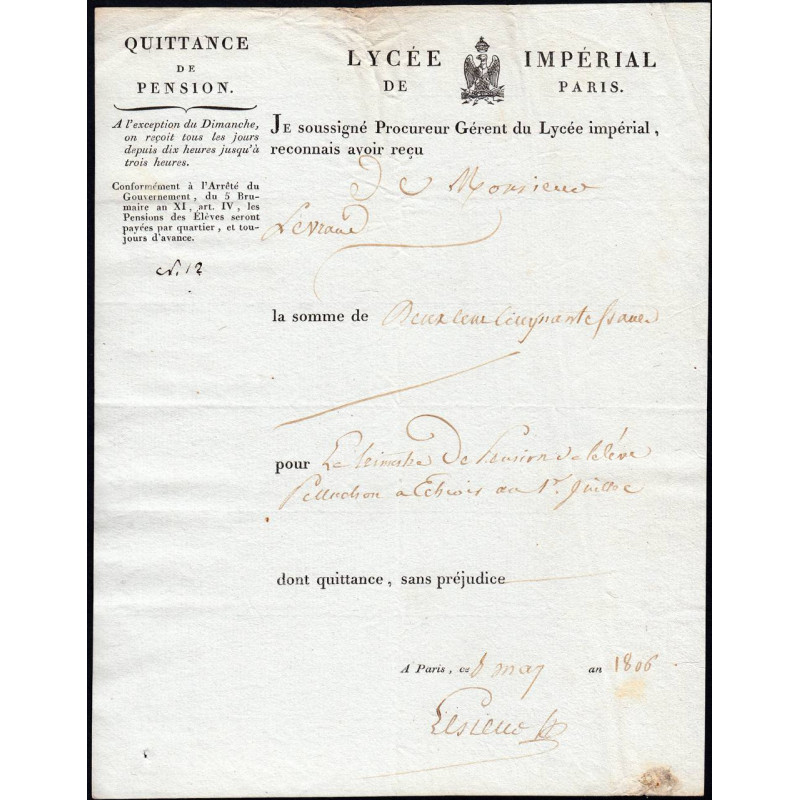 QUITTANCE
DE
PENSION.
A l'exception du Dimanche,
on reçoit tous les jours
depuis dix heures jusqu'à
trois heures.
Conformément à l'Arrêté du
Gouvernement, du 5 Bru-
maire an XI, art. IV, les
Pensions des Élèves seront
payées par quartier, et tou-
jours d'avance.
N. 12
LYCÉE IMPÉRIAL
DE PARIS.
JE soussigné Procureur Gérent du Lycée impérial,
reconnais avoir reçu
De Monsieur
la somme de Deux cent cinquante francs
pour Le trimestre De Pension de l'élève
à Echoir au 1er Juillet
dont quittance, sans préjudice
A Paris, ce 8 may an 1806